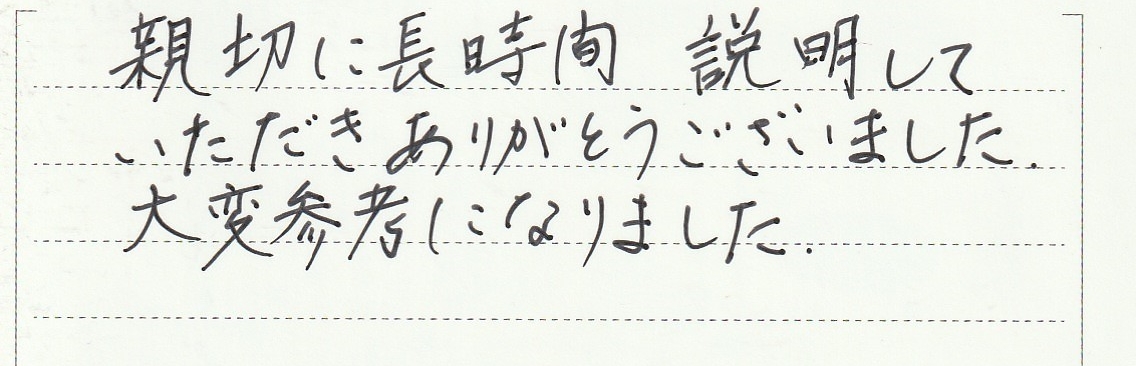 親切に長時間 説明して
いただきありがとうございました.
大変参考になりました.